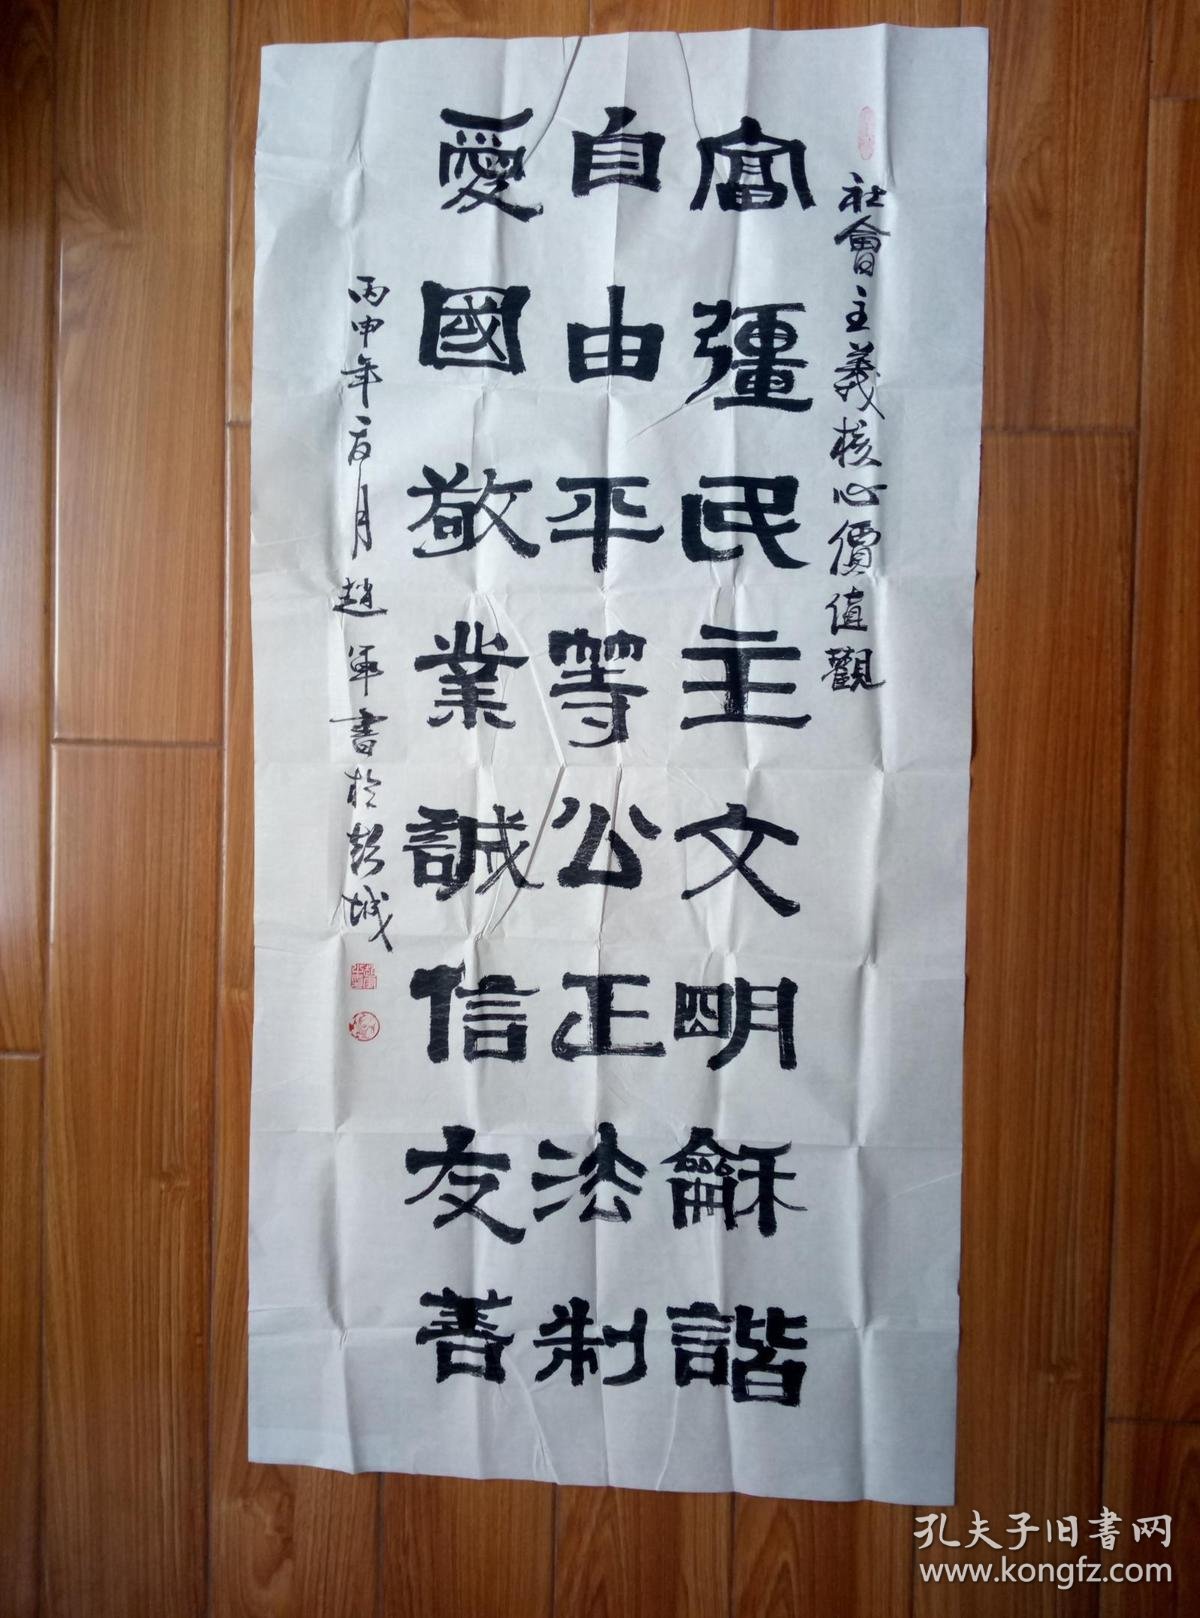 社會主義核心價值觀
富彊民主文明龢諧
自由平等公正法制
愛國敬業誠信友善
丙申年二月趙軍書於彭城
孔夫子旧書网
www.kongfz.com